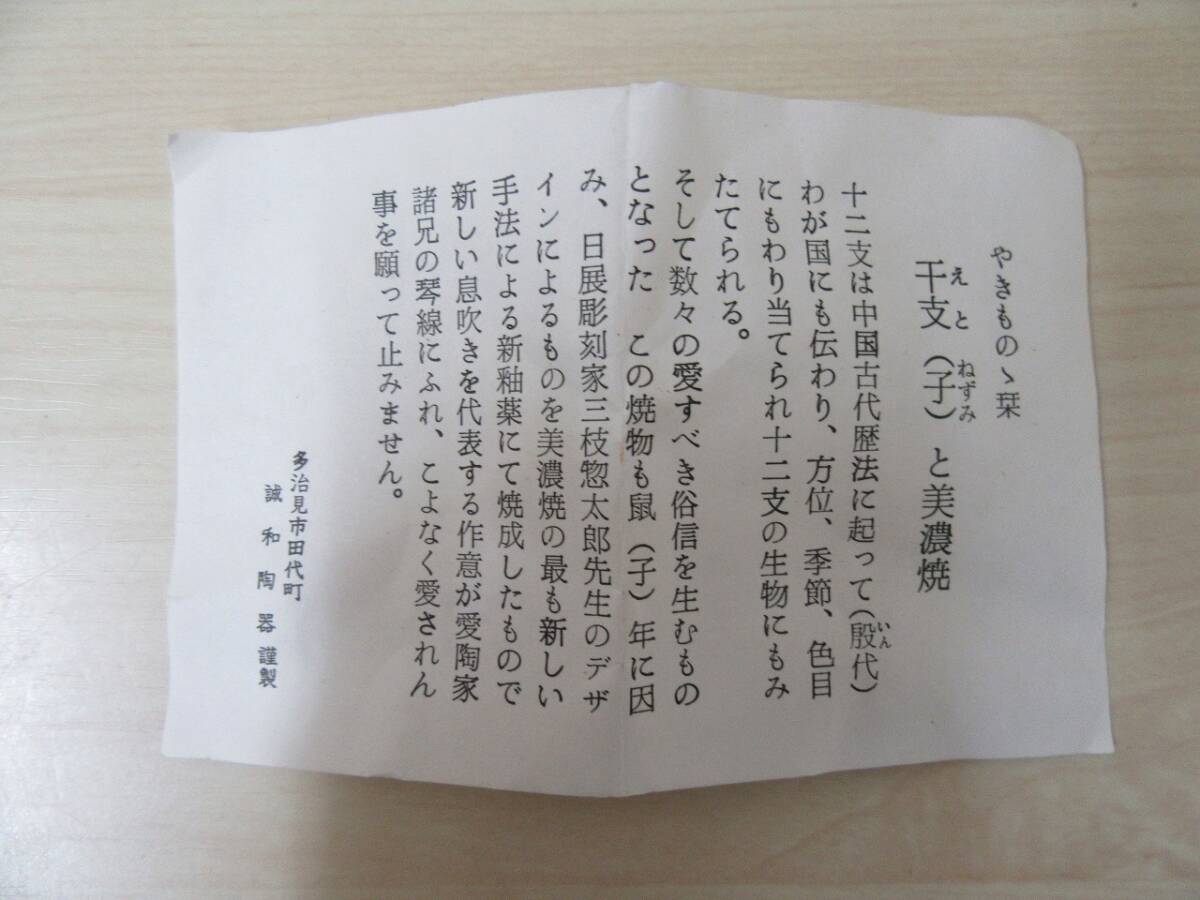 やきものゝ栞
干支（子）と美濃焼
十二支は中国古代歴法に起って（殷代）
わが国にも伝わり、方位、季節、色目
にもわり当てられ十二支の生物にもみ
たてられる。
そして数々の愛すべき俗信を生むもの
となった　この焼物も鼠（子）年に因
み、日展彫刻家三枝惣太郎先生のデザ
インによるものを美濃焼の最も新しい
手法による新釉薬にて焼成したもので
新しい息吹きを代表する作意が愛陶家
諸兄の琴線にふれ、こよなく愛されん
事を願って止みません。
多治見市田代町
誠和陶器謹製